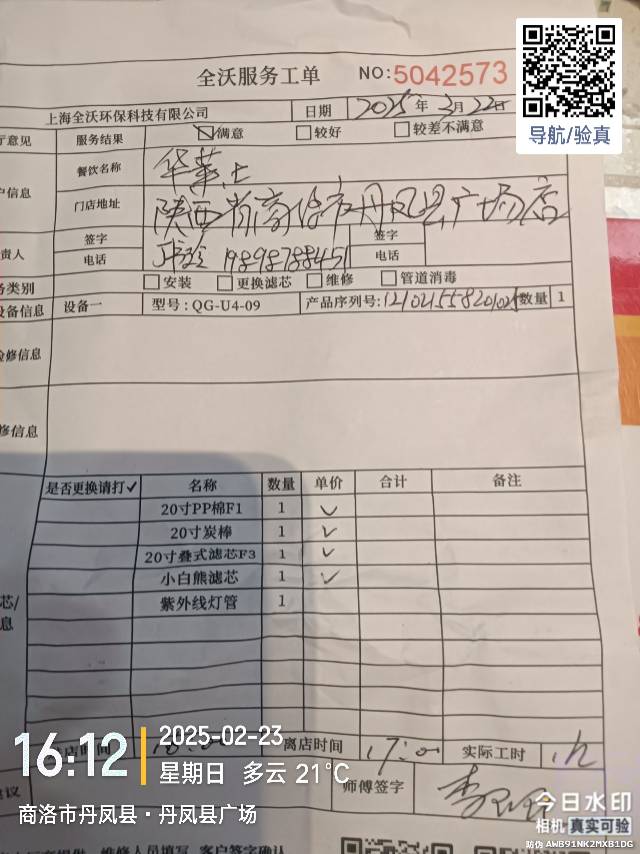 全沃服务工单 NO:5042573
导航/验真
上海全沃环保科技有限公司 日期 2025年2月22日
意见 服务结果 满意 较好 较差不满意
餐饮名称 华莱士
信息 门店地址 陕西省商洛市丹凤县广场店
签字 签字
责人 电话 19898788451 电话
务类别 安装 更换滤芯 维修 管道消毒
设备信息 设备一 型号:QG-U4-09 产品序列号: 数量 1
检修信息
修信息
是否更换请打✓ 名称 数量 单价 合计 备注
20寸PP棉F1 1 ✓
20寸炭棒 1 ✓
20寸叠式滤芯F3 1 ✓
小白熊滤芯 1 ✓
芯/ 紫外线灯管 1
息
店时间 离店时间 17:00 实际工时 1h
建议 师傅签字
16:12
2025-02-23
星期日 多云 21℃
商洛市丹凤县·丹凤县广场
今日水印
相机 真实可验
防伪 AWB91NK2MXB1DG
维修人员填写，客户签字确认